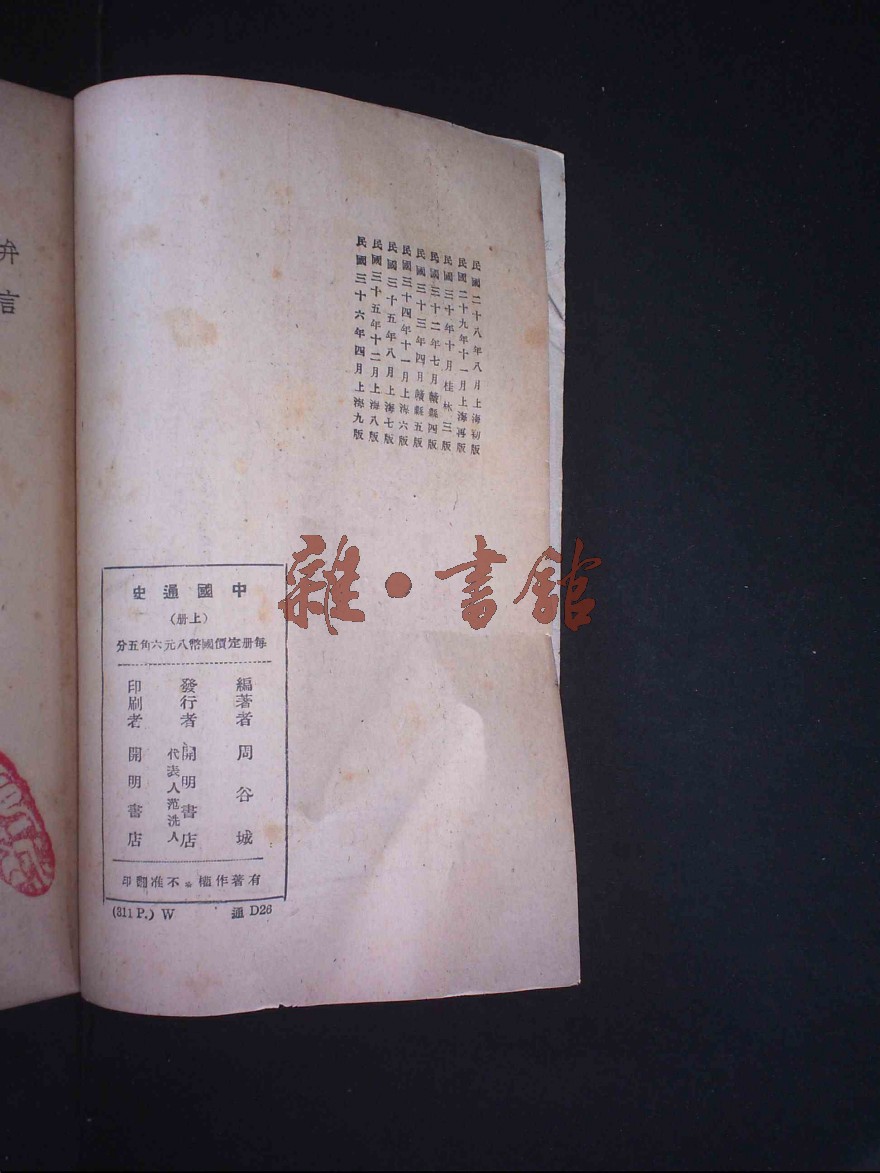 民國二十八年八月上海初版
民國二十九年十一月上海再版
民國三十年十月桂林三版
民國三十二年七月贛縣四版
民國三十三年四月贛縣五版
民國三十四年十一月上海六版
民國三十五年八月上海七版
民國三十五年十二月上海八版
民國三十六年四月上海九版
弁言
雜·書館
中國通史
(上册)
每册定價國幣八元六角五分
編著者 周谷城
發行者 開明書店
代表人范洗人
印刷者 開明書店
有著作權*不准翻印
(311 P.) W 通 D26